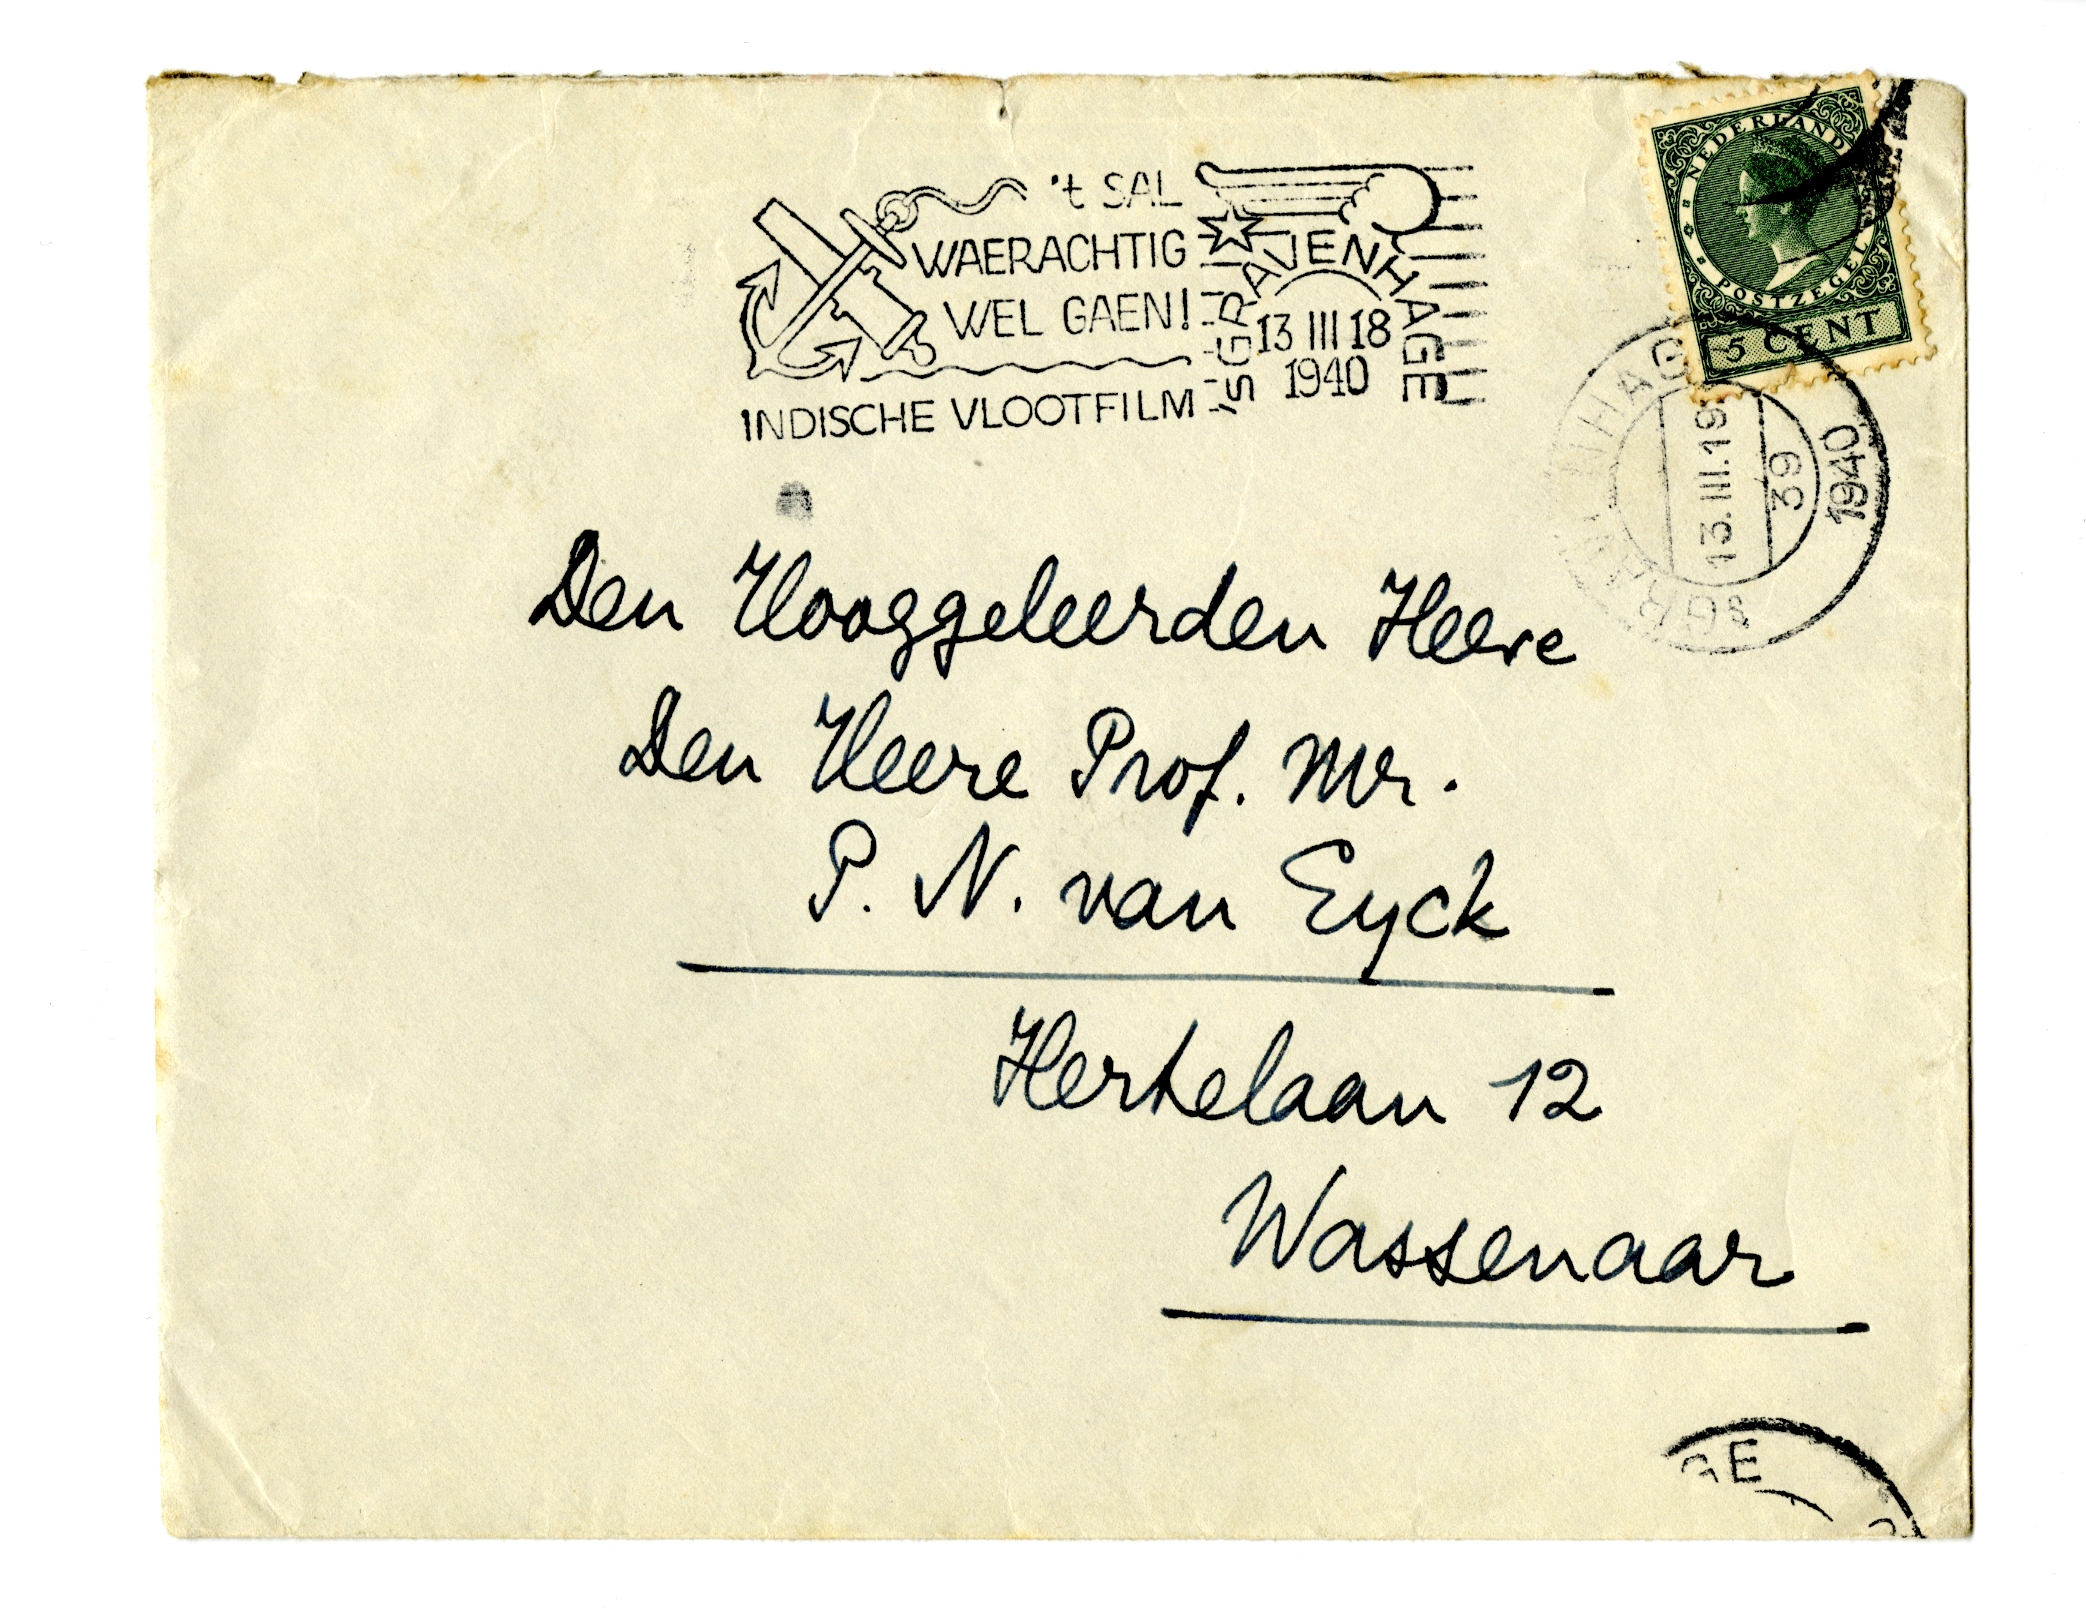 't SAL
WAERACHTIG
WEL GAEN!
INDISCHE VLOOTFILM
'SGRAVENHAGE
13 III 18
1940
NEDERLAND
POSTZEGEL
5 CENT
13.III.19
39
1940
Den Hooggeleerden Heere
Den Heere Prof. Mr.
P. N. van Eyck
Hertelaan 12
Wassenaar
GE